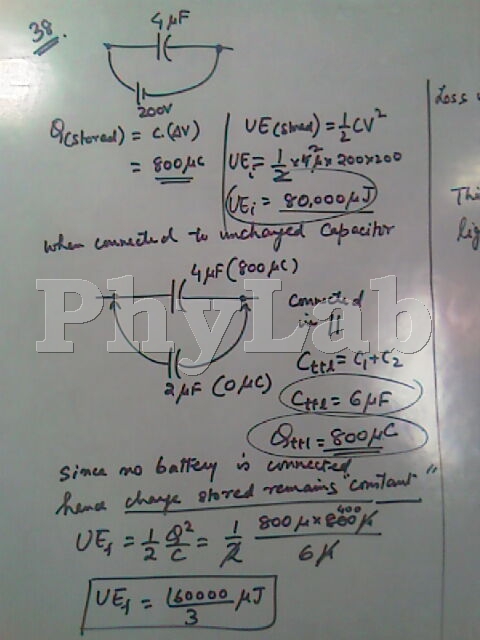 38.
4μF
200V
Q(stored) = C.(ΔV)
= 800μC
UE(stored) = 1/2 CV²
UEi = 1/2 × 4μ × 200 × 200
UEi = 80,000μJ
when connected to uncharged capacitor
4μF (800μC)
2μF (0μC)
connected
in ||
Cttl = C1 + C2
Cttl = 6μF
Qttl = 800μC
Since no battery is connected
hence charge stored remains "constant"
UEf = 1/2 Q²/C = 1/2 800μ × 800μ / 6μ
400
UEf = 160000/3 μJ
Loss
PhyLab